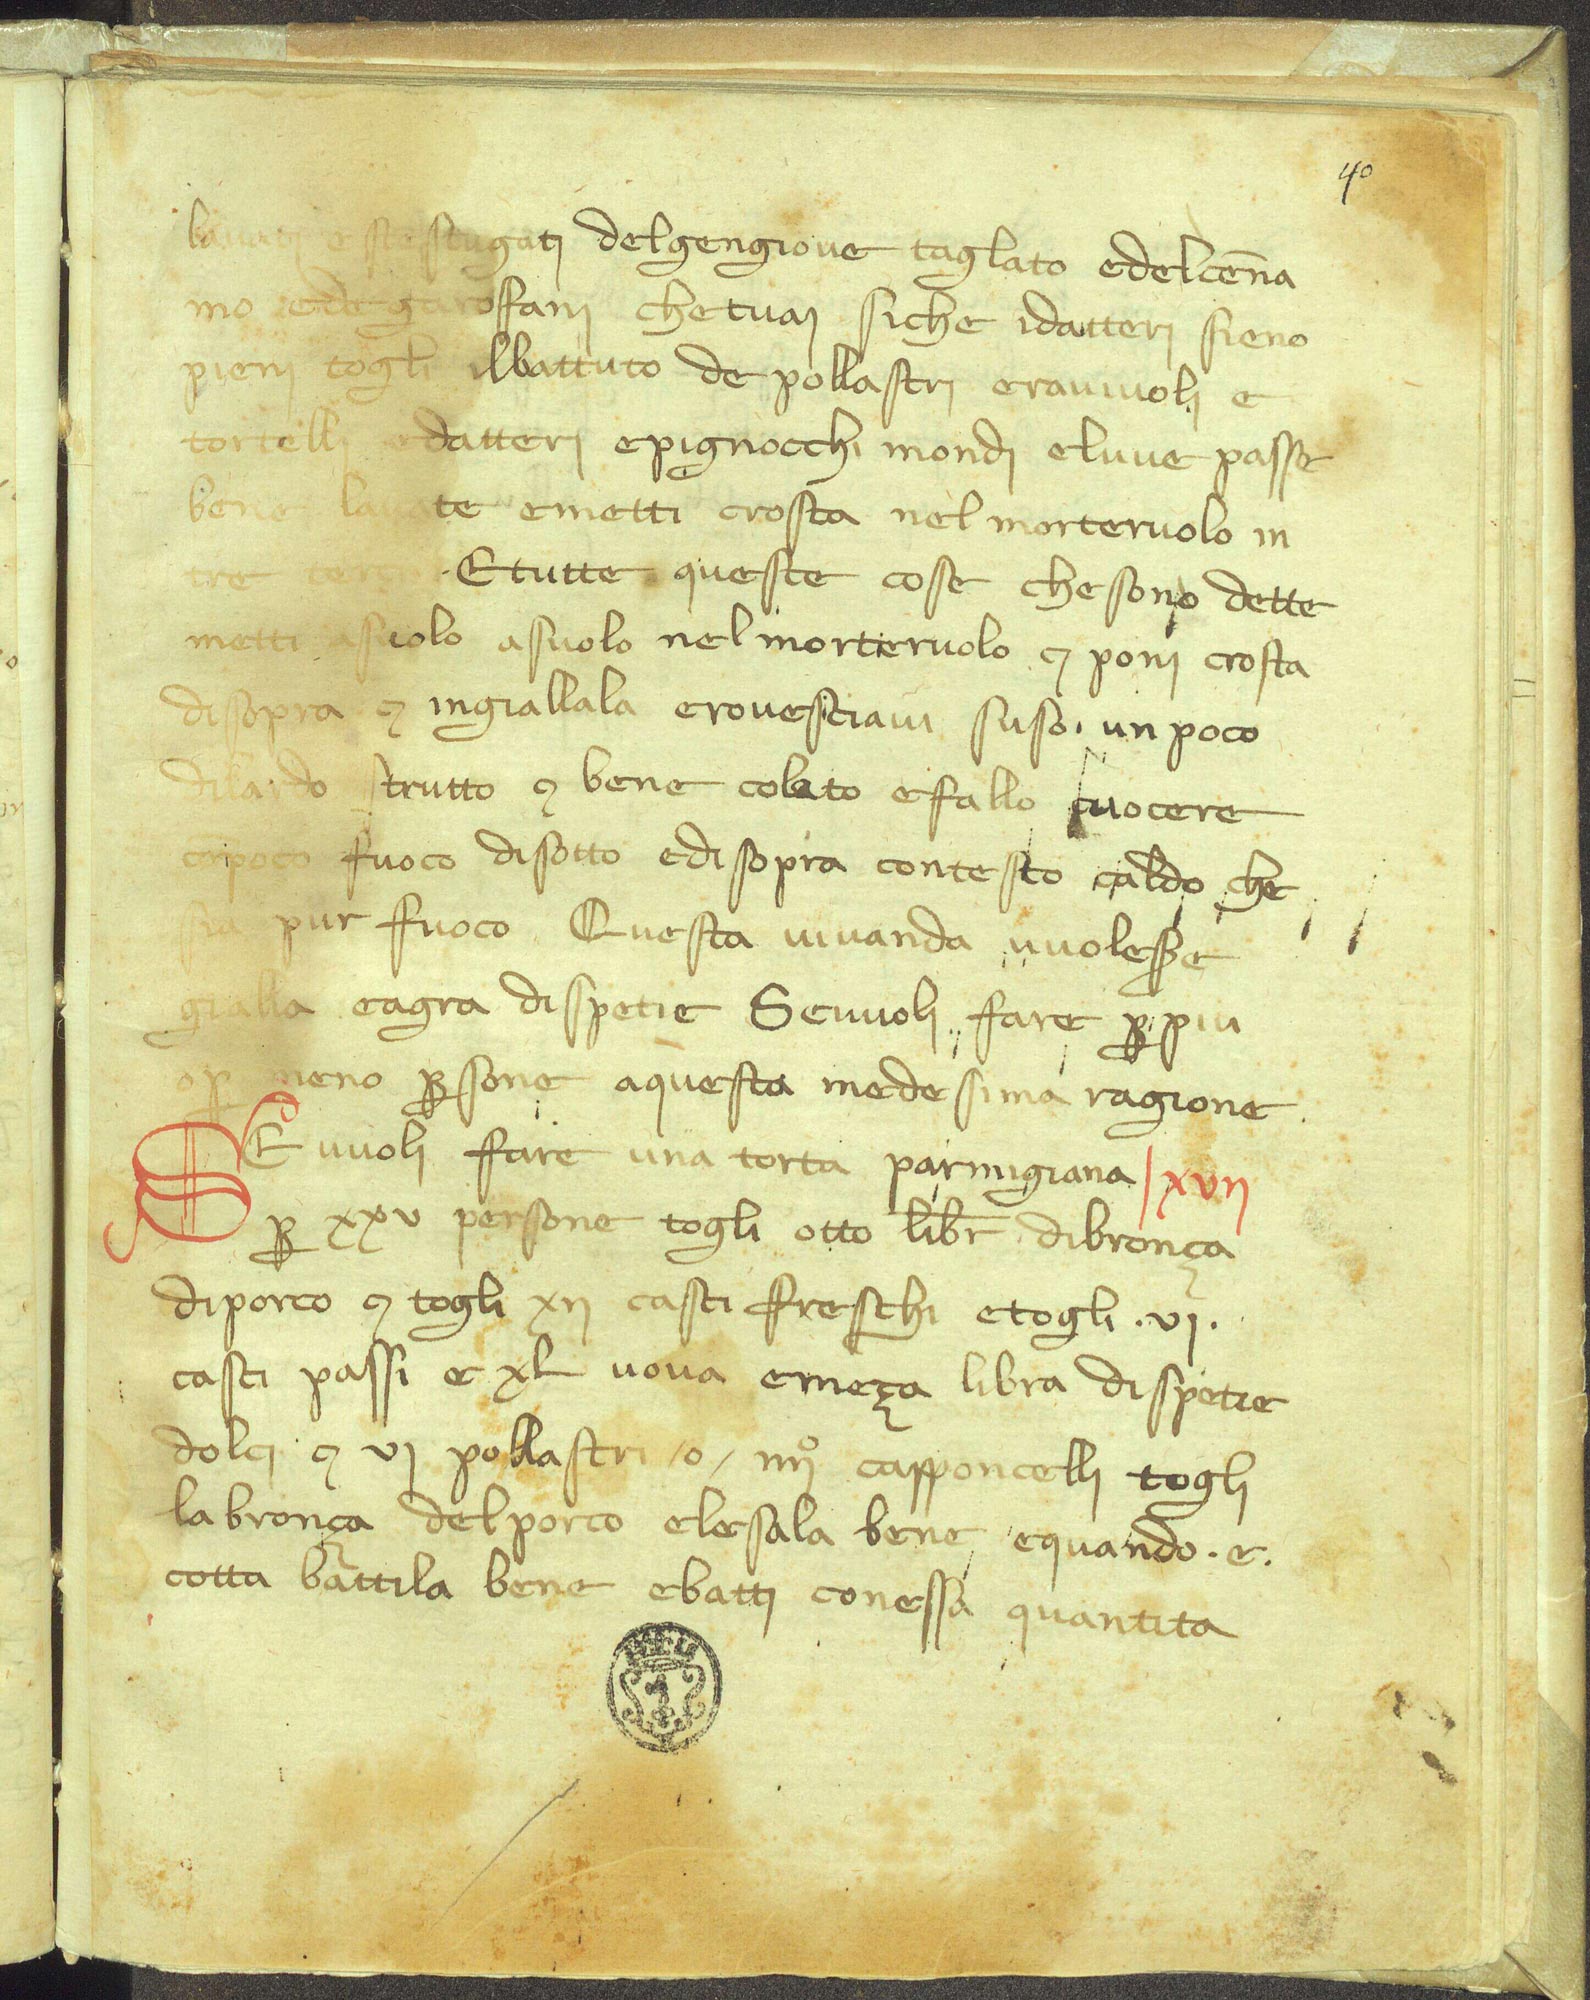 40
lavati e sciugati delgengiove taglato edelcen̄a
mo ede garoffani chetuai siche idatteri sieno
pieni togli ilbattuto de pollastri eravivoli e
tortelli edatteri epignocchi mondi eluve passe
bene lavate emetti crosta nel morteruolo in
tre Etutte queste cose chesono dette
metti asuolo asuolo nelmorteruolo ⁊ poni crosta
disopra ⁊ ingiallala erovesciavi suso· un poco
dilardo strutto ⁊ bene colato efallo cuocere
cōpoco fuoco disotto edisopra contesto caldo che
sia pur fuoco Questa vivanda vuolesse
gialla eagra dispetie Sevuoli fare ꝑ piu
o ꝑ meno ꝑsone aquesta medesima ragione
SE vuoli fare una torta parmigiana /xvii
ꝑ xxv persone togli otto libr̄ dibronça
diporco ⁊ togli xii casci freschi etogli ·vi·
casci passi e xl uova emeça libra dispetie
dolci ⁊ vi pollastri /o/ iiiiº capponcelli togli
labronça delporco elesala bene equando·e·
cotta battila bene ebatti conessa quantita